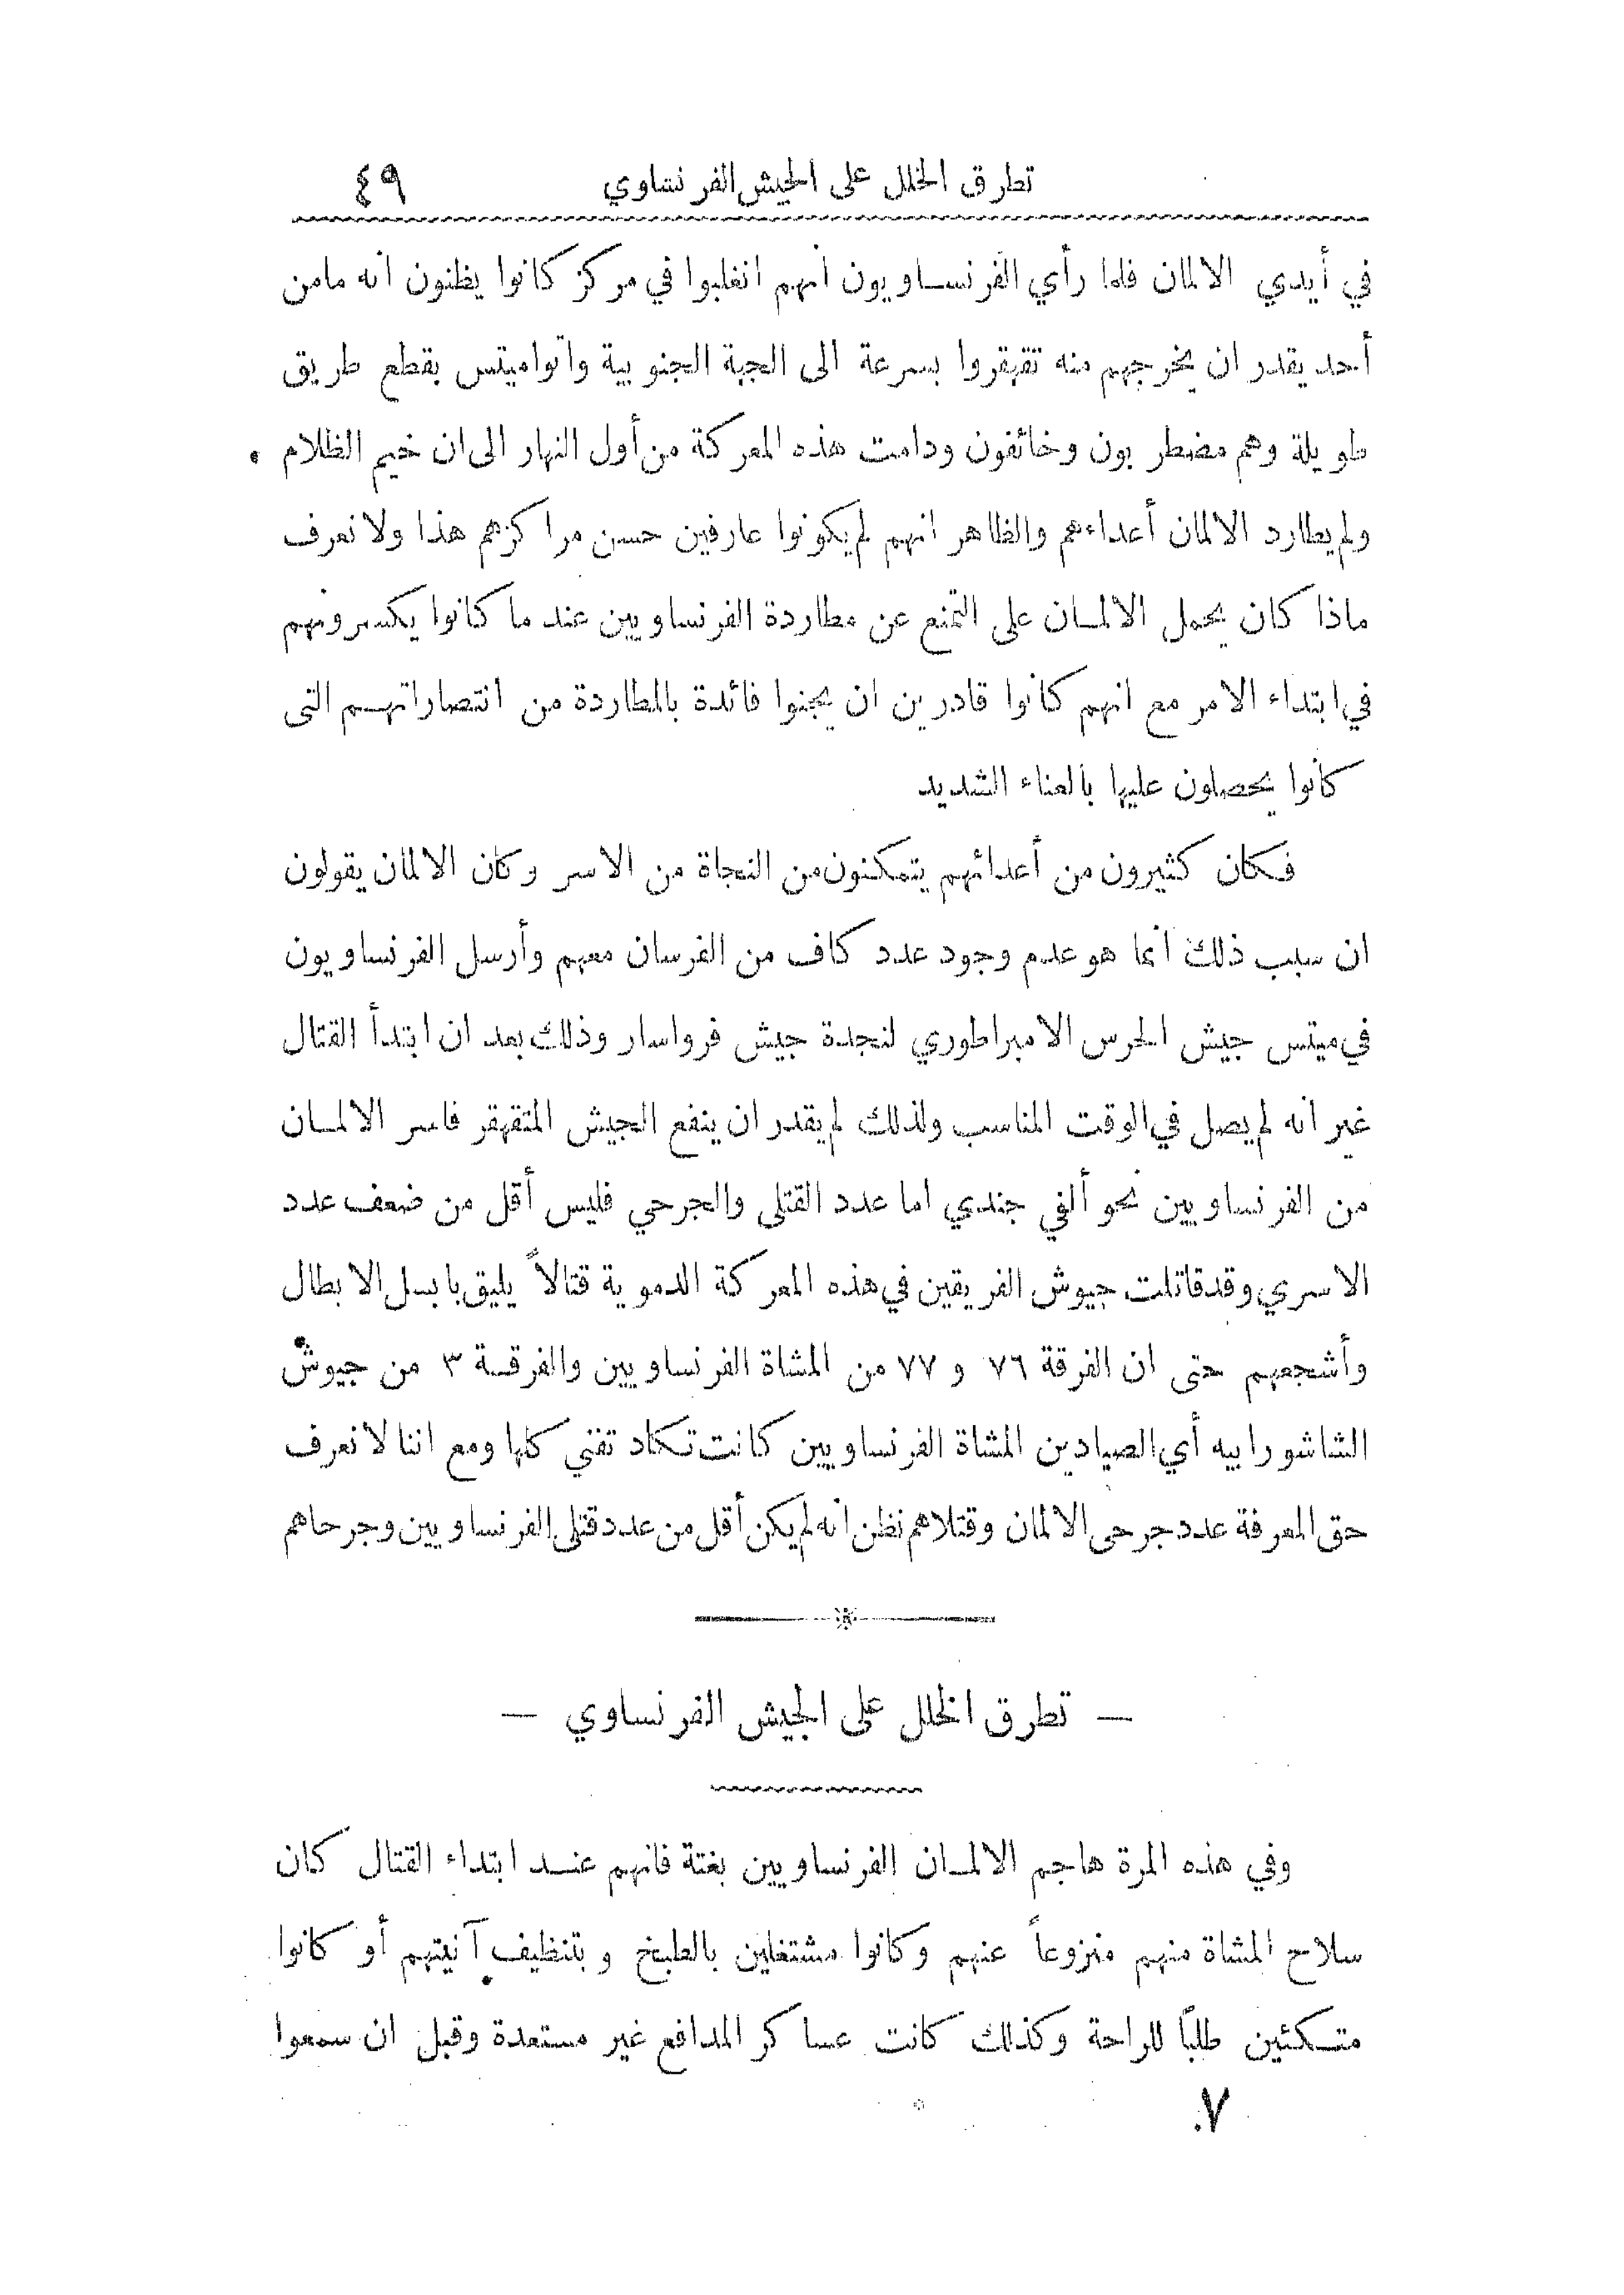 تطرق الخلل على الجيش الفرنساوي ٤٩
في أيدي الالمان فلما رأي الفرنساويون أنهم انغلبوا في مركز كانوا يظنون انه مامن
أحد يقدر ان يخرجهم منه تقهقروا بسرعة الى الجهة الجنوبية واتواميتس بقطع طريق
طويلة وهم مضطربون وخائفون ودامت هذه المعركة من أول النهار الى ان خيم الظلام .
ولم يطارد الالمان أعداءهم والظاهر انهم لم يكونوا عارفين حسن مراكزهم هذا ولا نعرف
ماذا كان يحمل الالمان على التمنع عن مطاردة الفرنساويين عند ما كانوا يكسرونهم
في ابتداء الامر مع انهم كانوا قادرين ان يجنوا فائدة بالمطاردة من انتصاراتهم التى
كانوا يحصلون عليها بالعناء الشديد
فكان كثيرون من أعدائهم يتمكنون من النجاة من الاسر وكان الالمان يقولون
ان سبب ذلك انما هو عدم وجود عدد كاف من الفرسان معهم وأرسل الفرنساويون
في ميتس جيش الحرس الامبراطوري لنجدة جيش فرواسار وذلك بعد ان ابتدأ القتال
غير انه لم يصل في الوقت المناسب ولذلك لم يقدر ان ينفع الجيش المتقهقر فاسر الالمان
من الفرنساويين نحو ألفي جندي اما عدد القتلى والجرحي فليس أقل من ضعف عدد
الاسري وقد قاتلت جيوش الفريقين في هذه المعركة الدموية قتالاً يليق بابسل الابطال
وأشجعهم حتى ان الفرقة ٧٦ و ٧٧ من المشاة الفرنساويين والفرقة ٣ من جيوش
الشاشورابيه أي الصيادين المشاة الفرنساويين كانت تكاد تفني كلها ومع اننا لا نعرف
حق المعرفة عدد جرحى الالمان وقتلاهم نظن انه لم يكن أقل من عدد قتلى الفرنساويين وجرحاهم
— تطرق الخلل على الجيش الفرنساوي —
وفي هذه المرة هاجم الالمان الفرنساويين بغتة فانهم عند ابتداء القتال كان
سلاح المشاة منهم منزوعاً عنهم وكانوا مشتغلين بالطبخ وبتنظيف آنيتهم أو كانوا
متكئين طلباً للراحة وكذلك كانت عساكر المدافع غير مستعدة وقبل ان سمعوا
٧